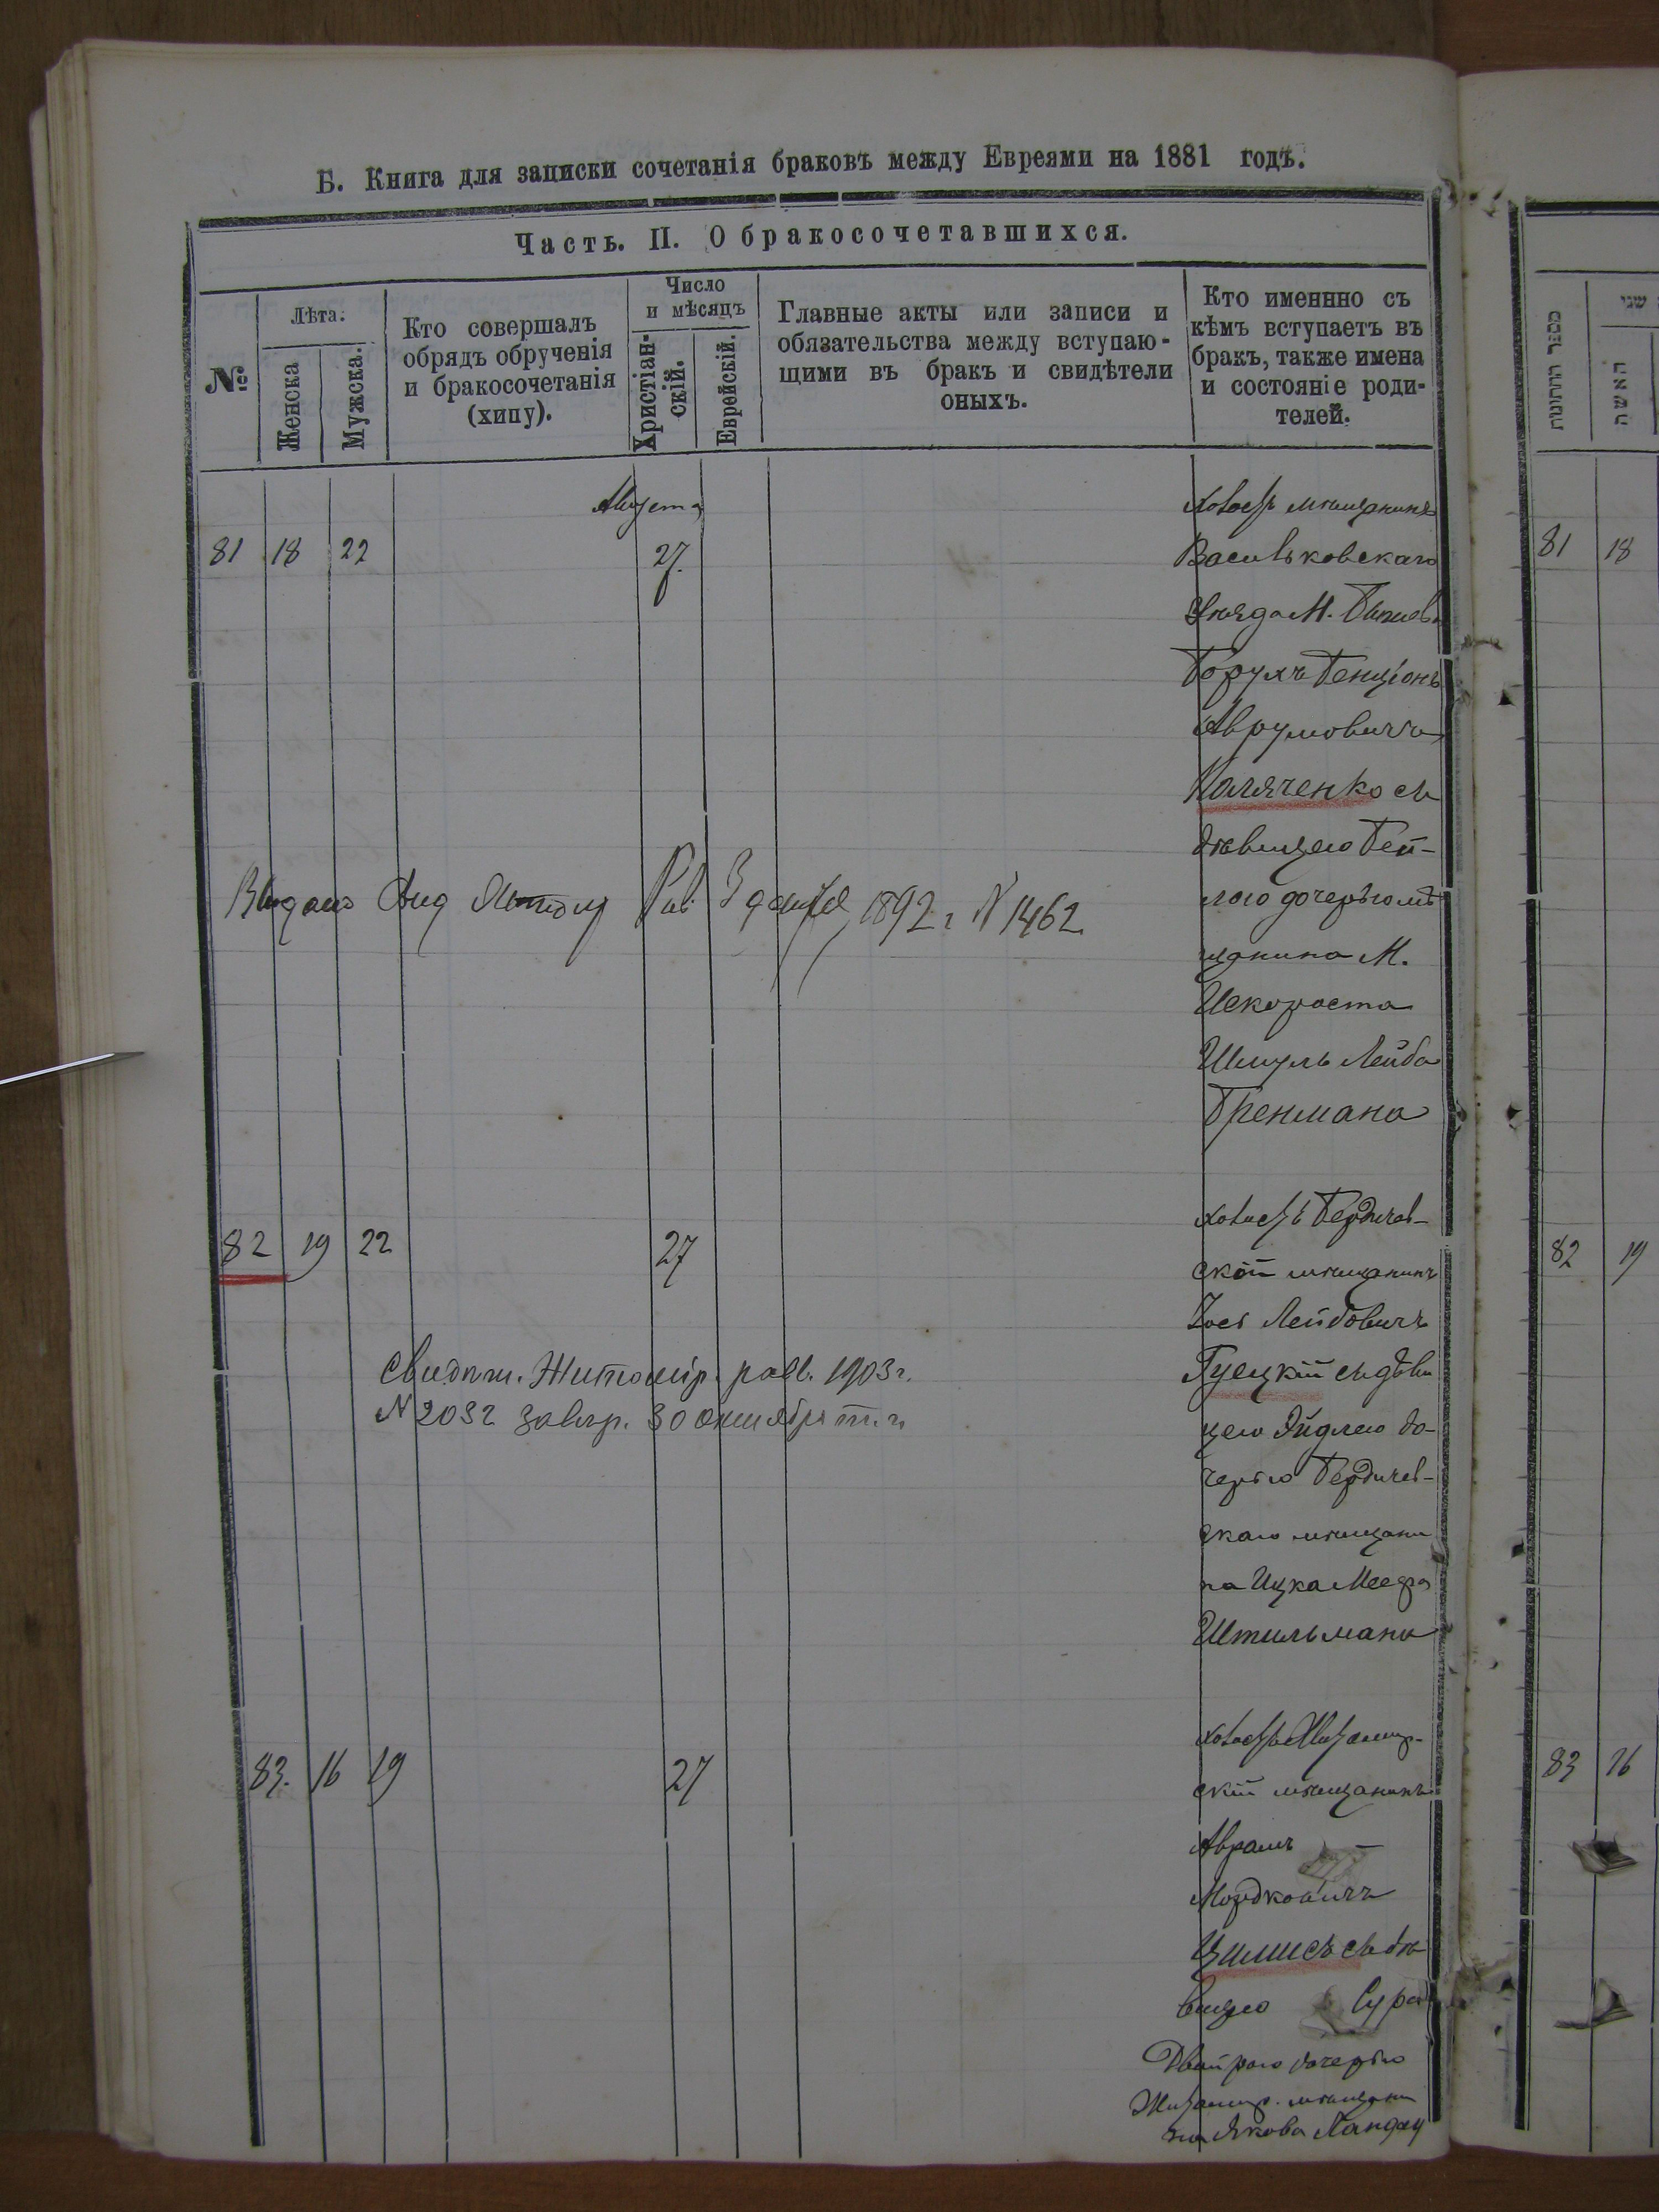 Б. Книга для записки сочетанія браковъ между Евреями на 1881 годъ.
Часть. II. О бракосочетавшихся.
№
Лѣта.
Женска
Мужска.
Кто совершалъ
обрядъ обрученія
и бракосочетанія
(хипу).
Число
и мѣсяцъ
Христіан-
скій.
Еврейскій.
Главные акты или записи и
обязательства между вступаю-
щими въ бракъ и свидѣтели
оныхъ.
Кто именнно съ
кѣмъ вступаетъ въ
бракъ, также имена
и состояніе роди-
телей.
Августа
81 18 22 27.
мѣщанинъ
Васильковскаго
уѣзда М.
Борухъ Бенціонъ
Аврумовичъ
съ
дѣвицею Бей-
лою дочерью мѣ
щанина М.
Искороста
Шмуль Лейба
Бренмана
1892 г. № 1462
82 19 22 27
Бердичев-
скій мѣщанинъ
Лейбовичъ
съ дѣви
цею Эйдлею до-
черью Бердичев-
скаго мѣщани
на Ицка Меера
Штильмана
Житомір. равв. 1903 г.
№ 2032 30 октября т. г.
83. 16 19 27
Житомир-
скій мѣщанинъ
Аврамъ
Мордковичъ
съ дѣ
вицею Сура
Двойрою дочерью
Житомир. мѣщани
на Якова Ландау
מספר החתונות
שני
האשה
81 18
82 19
83 16